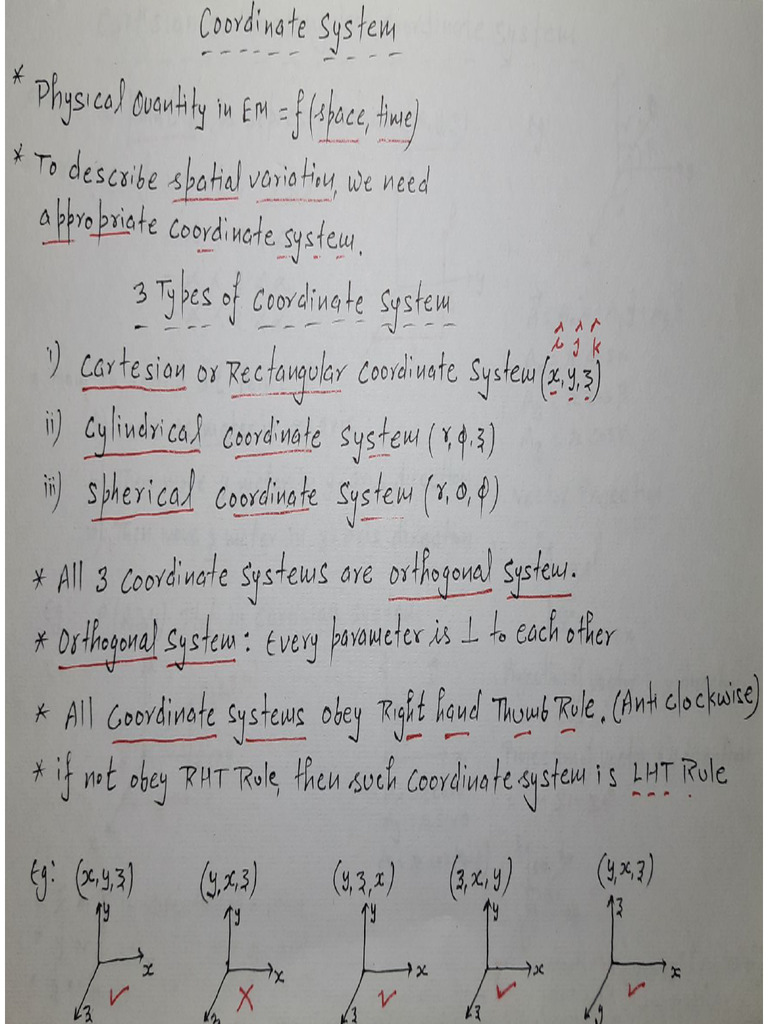 Coordinate System
* Physical Quantity in EM = f (space, time)
* To describe spatial variation, we need
appropriate coordinate system.
3 Types of Coordinate System
î ĵ k̂
i) Cartesian or Rectangular Coordinate System (x, y, z)
ii) Cylindrical Coordinate System (r, φ, z)
iii) Spherical Coordinate System (r, θ, φ)
* All 3 Coordinate Systems are orthogonal System.
* Orthogonal System: Every parameter is ⊥ to each other
* All Coordinate Systems obey Right hand Thumb Rule. (Anti clockwise)
* if not obey RHT Rule, then such Coordinate system is LHT Rule
Eg: (x, y, z) (y, x, z) (y, z, x) (z, x, y) (y, x, z)
y y y y z
x x x x x
z z z z y
✓ X ✓ ✓ ✓